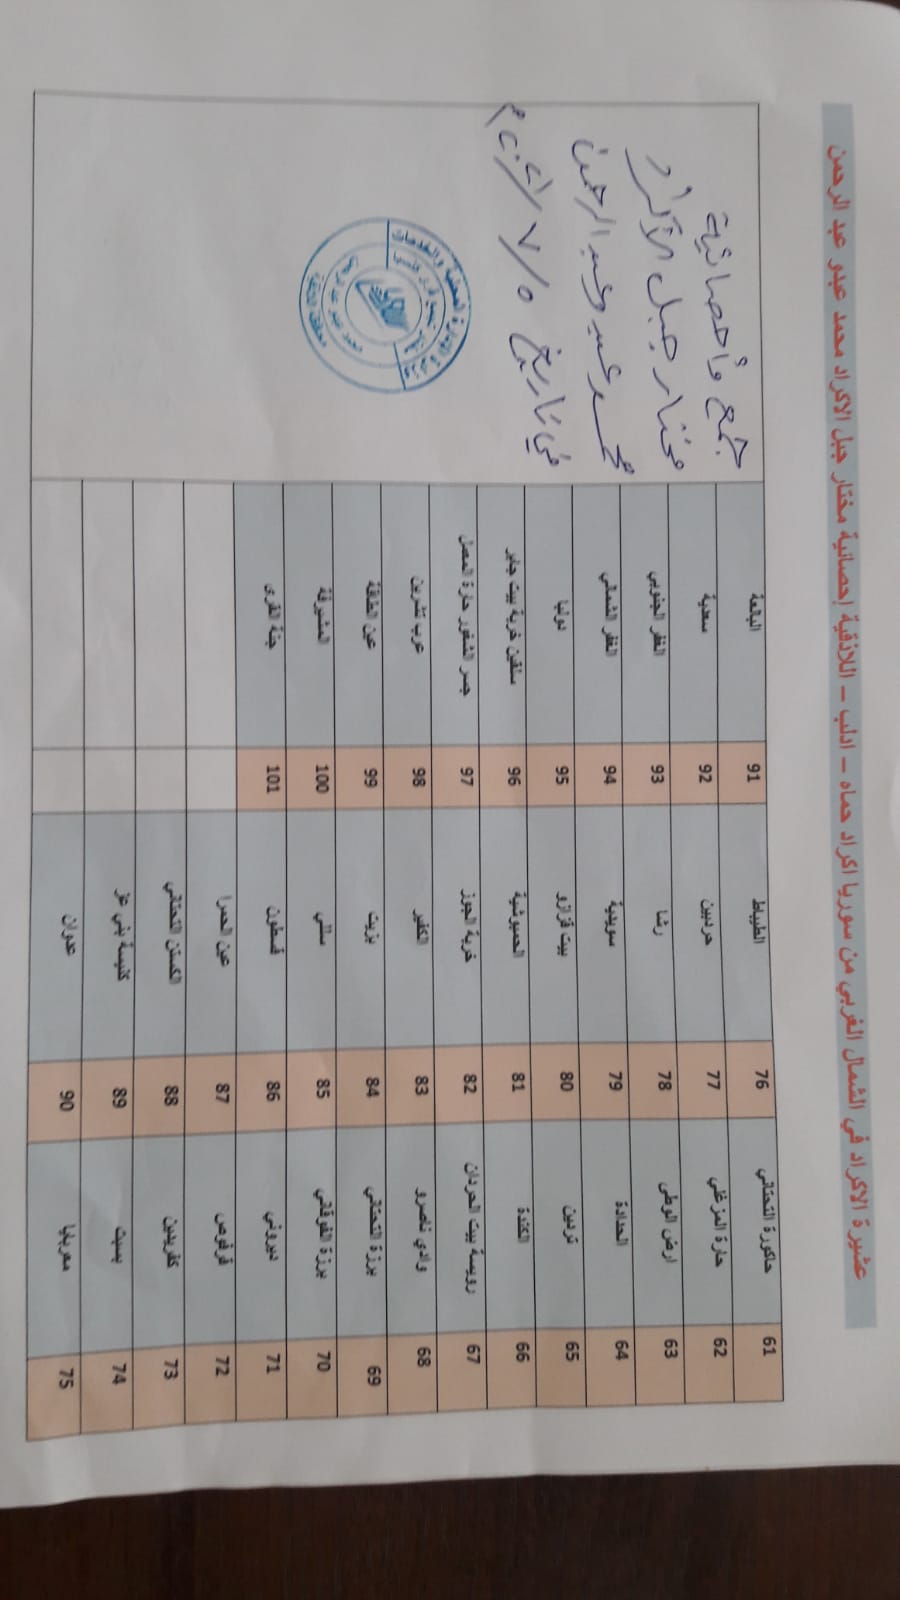 عشيرة الاكراد في الشمال الغربي من سوريا اكراد حماه – ادلب – اللاذقية إحصائية مختار جبل الاكراد محمد عبدو عبد الرحمن
61 حاكورة التحتاني 76 الطيباط 91 البالعة
62 حارة المزغلي 77 حردبين 92 سعدية
63 ارض الوطى 78 رشا 93 الغفر الجنوبي
64 الحدادة 79 سويدية 94 الغفر الشمالي
65 تردين 80 بيت فزازو 95 لولبا
66 الكندة 81 الحمبوشية 96 سلقين خربة بيت جابر
67 رويسة بيت الحردان 82 خربة الجوز 97 جسر الشغور حارة المصل
68 وادي ناصرو 83 الكفير 98 عرب تشرين
69 برزة التحتاني 84 بزيت 99 عين الطاقة
70 برزة الفوقاني 85 سللي 100 المشرفة
71 ديروني 86 قسطون 101 جنة القرى
72 فرفوص 87 عين الحمرا
73 كفريدين 88 الكستن التحتاني
74 بسبت 89 كنيسة بني عز
75 معربايا 90 عدوان
جمع وأحصائية
مختار جبل الأكراد
محمد عبدو عبد الرحمن
في تاريخ ٥/٧/
وزارة الإدارة المحلية والخدمات